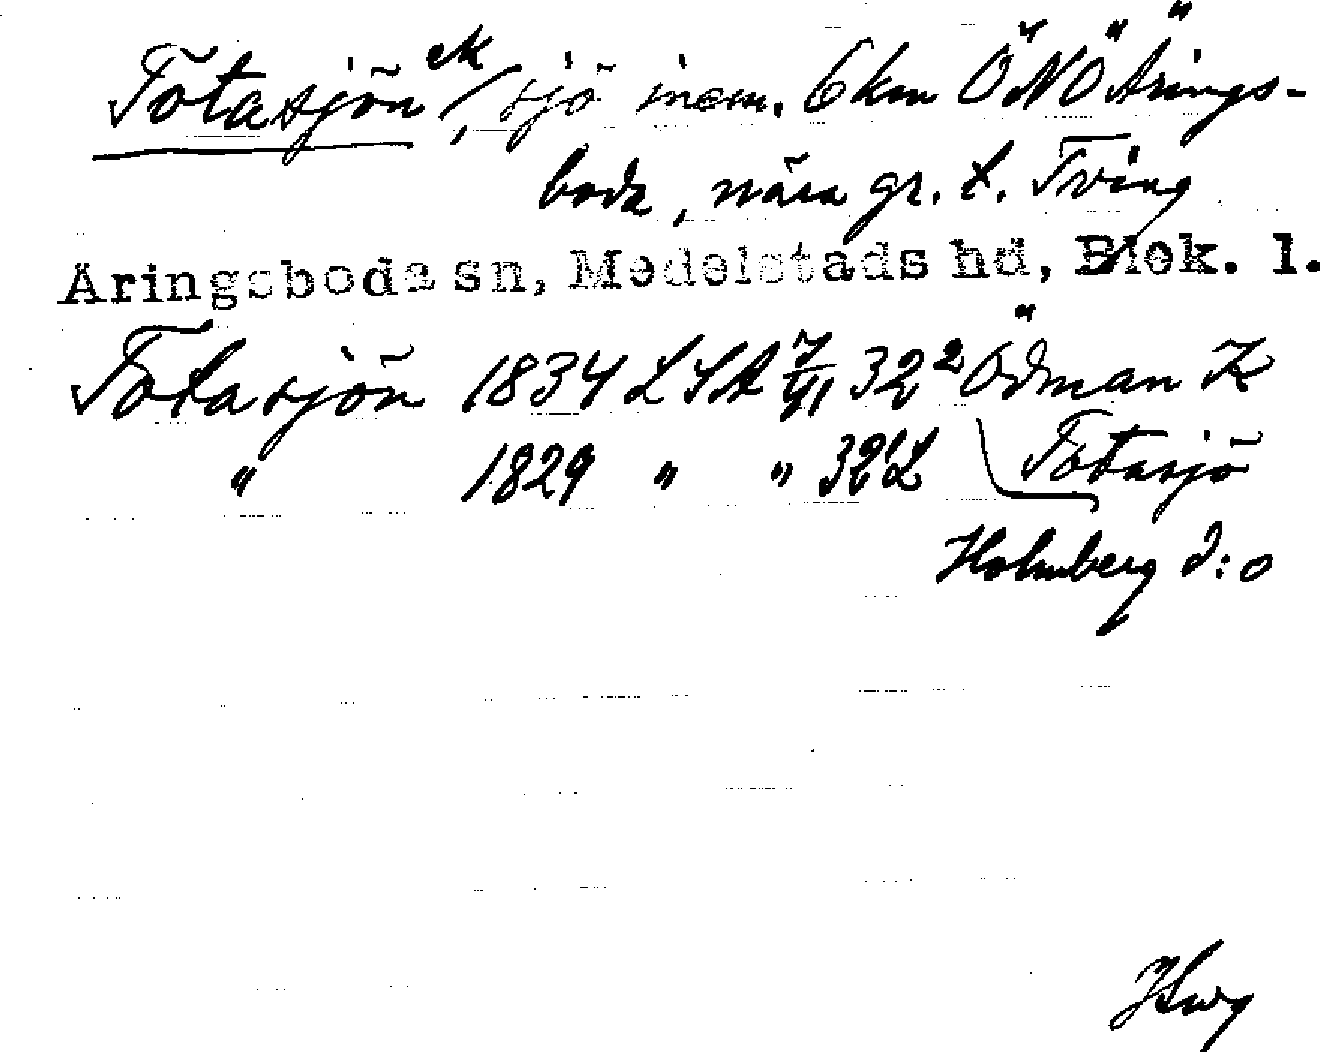 Totasjön ek, sjö inom. 6 km ÖNÖ Årings-
boda, nära gr. t. Tving
Åringsboda sn, Medelstads hd, Blek. l.
Totasjön 1834 LSA 32² Ödman K
" 1829 " " 32¹L Totasjö
Holmberg d:o